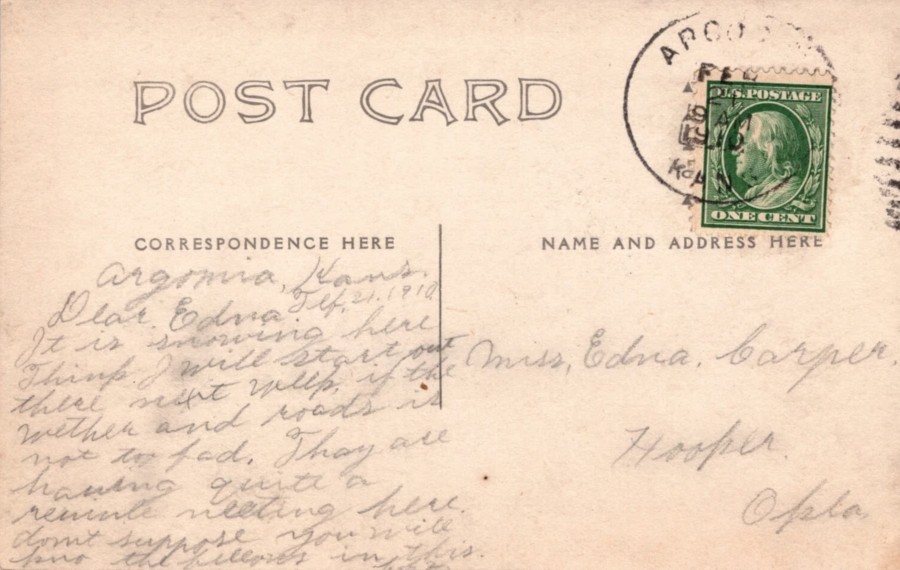 POST CARD
ARGO
FEB
21
AM
1910
KAN
U.S. POSTAGE
ONE CENT
CORRESPONDENCE HERE
NAME AND ADDRESS HERE
Argonia, Kans.
Feb, 21, 1910
Dear. Edna.
It is snowing here
Think I will start out
there next week, if the
wether and roads is
not to bad. Thay are
having quite a
meeting here.
dont suppose you will
kno the fellows in this.
Miss, Edna. Carper.
Hooper.
Okla,